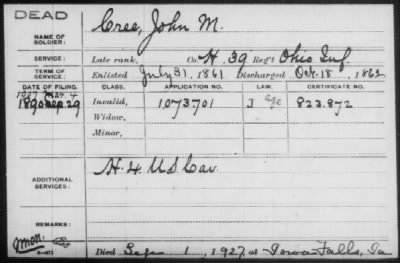 DEAD
NAME OF SOLDIER: Cree, John M.
SERVICE: Late rank, Co. H, 39 Reg't Ohio Inf.
TERM OF SERVICE: Enlisted July 31, 1861 Discharged Oct. 18, 1862
DATE OF FILING. CLASS. APPLICATION NO. LAW. CERTIFICATE NO.
1890 Sep. 29 Invalid, 1073701 J Age 823.872
Widow,
Minor,
ADDITIONAL SERVICES: H. 4 US Cav
REMARKS:
Died Sep 1, 1927, at Iowa Falls, Ia